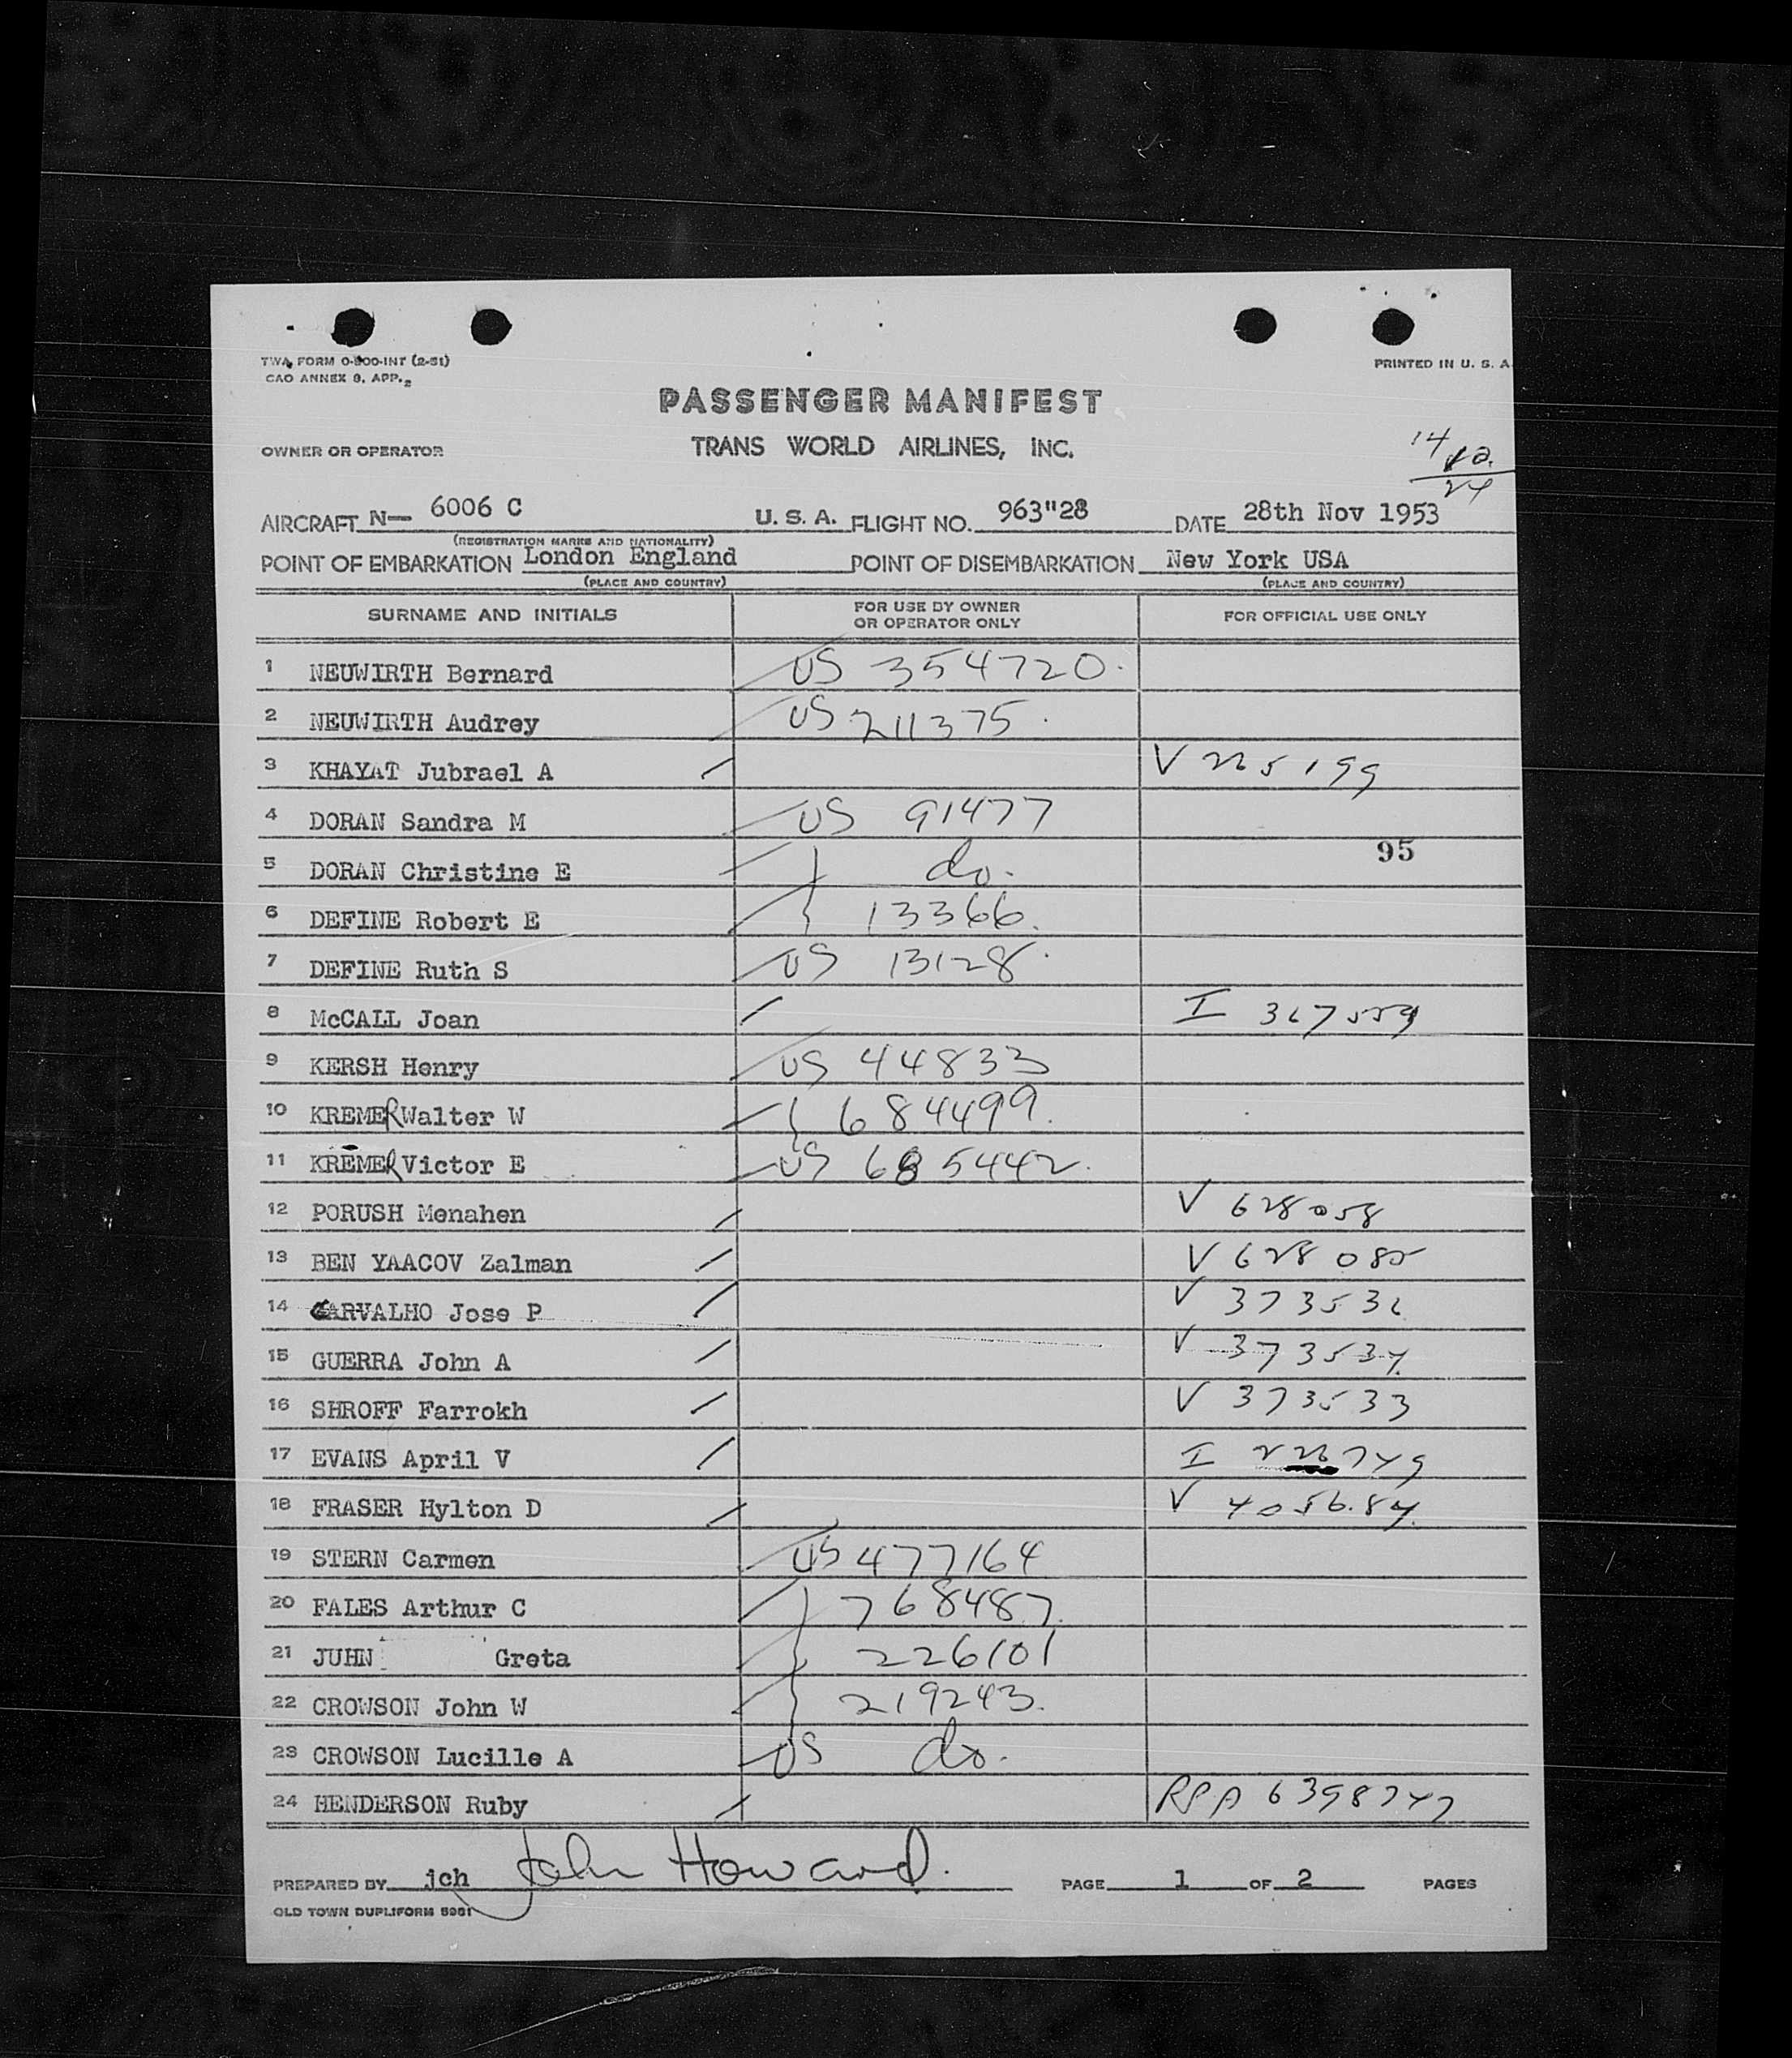 TWA FORM O-800-INT (2-51)
CAO ANNEX 9, APP. 2
PRINTED IN U. S. A.
PASSENGER MANIFEST
OWNER OR OPERATOR TRANS WORLD AIRLINES, INC.
14
10.
24
AIRCRAFT N— 6006 C U. S. A. FLIGHT NO. 963"28 DATE 28th Nov 1953
(REGISTRATION MARKS AND NATIONALITY)
POINT OF EMBARKATION London England POINT OF DISEMBARKATION New York USA
(PLACE AND COUNTRY) (PLACE AND COUNTRY)
SURNAME AND INITIALS FOR USE BY OWNER OR OPERATOR ONLY FOR OFFICIAL USE ONLY
1 NEUWIRTH Bernard US 354720.
2 NEUWIRTH Audrey US 211375.
3 KHAYAT Jubrael A V 225199
4 DORAN Sandra M US 91477
95
5 DORAN Christine E do.
6 DEFINE Robert E 13366.
7 DEFINE Ruth S US 13128.
8 McCALL Joan I 367559
9 KERSH Henry US 44833
10 KREMER Walter W 684499.
11 KREMER Victor E US 685442.
12 PORUSH Menahen V 628058
13 BEN YAACOV Zalman V 628085
14 CARVALHO Jose P V 373532
15 GUERRA John A V 373534.
16 SHROFF Farrokh V 373533
17 EVANS April V I
18 FRASER Hylton D V 405684.
19 STERN Carmen US 477164
20 FALES Arthur C 768487.
21 JUHN Greta 226101
22 CROWSON John W 219243.
23 CROWSON Lucille A US do.
24 HENDERSON Ruby RPA 6398747
PREPARED BY jch John Howard. PAGE 1 OF 2 PAGES
OLD TOWN DUPLIFORM 5961